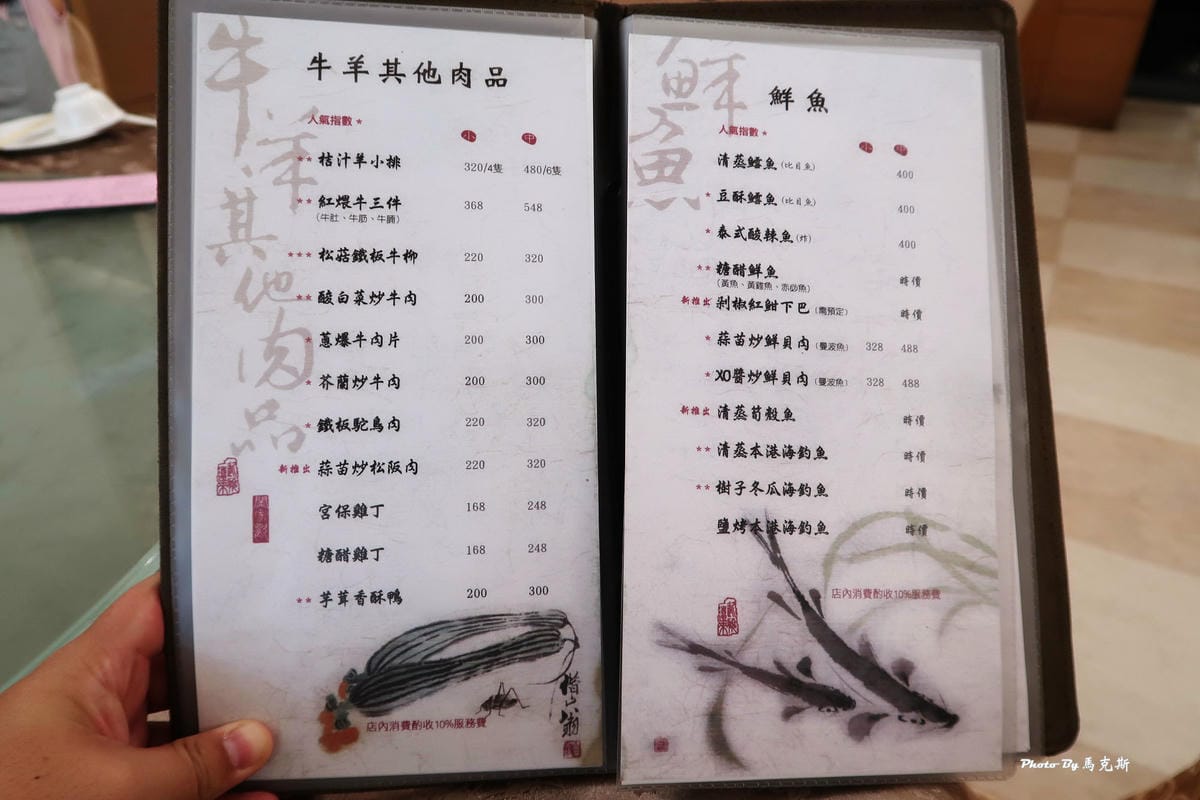 牛羊其他肉品
牛羊其他肉品
人氣指數★
小 中
★★ 桔汁羊小排 320/4隻 480/6隻
★★ 紅煨牛三件 368 548
(牛肚、牛筋、牛腩)
★★★ 松菇鐵板牛柳 220 320
★★ 酸白菜炒牛肉 200 300
★ 蔥爆牛肉片 200 300
★ 芥蘭炒牛肉 200 300
★ 鐵板駝鳥肉 220 320
新推出 蒜苗炒松阪肉 220 320
宮保雞丁 168 248
糖醋雞丁 168 248
★★ 芋茸香酥鴨 200 300
店內消費酌收10%服務費
借山翁
鮮魚
鮮魚
人氣指數★
小 中
清蒸鱈魚(比目魚) 400
★ 豆酥鱈魚(比目魚) 400
★ 泰式酸辣魚(炸) 400
★★ 糖醋鮮魚 時價
(黃魚、黃雞魚、赤筆魚)
新推出 剁椒紅魽下巴(需預定) 時價
★ 蒜苗炒鮮貝肉(曼波魚) 328 488
★ XO醬炒鮮貝肉(曼波魚) 328 488
新推出 清蒸荀殼魚 時價
★★ 清蒸本港海釣魚 時價
★★ 樹子冬瓜海釣魚 時價
鹽烤本港海釣魚 時價
店內消費酌收10%服務費
Photo By 馬克斯